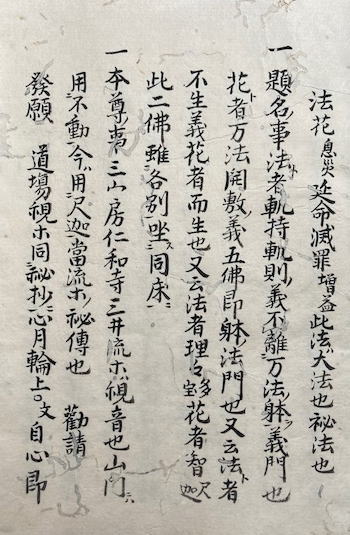 法花息災延命滅罪増益此法ハ大法也秘法也
一題名事法ト者軌持軌則ノ義不離二万法ノ躰ヲ義門也
花ト者万法開敷ノ義五佛即躰ノ法門也又云法ト者
不生義花者而生也又云法者理々多宝花者智尺迦
此二佛雖二各別一坐ス同床ニ
一本尊事三山房仁和寺三井流ホハ観音也山門ニハ
用二不動ヲ今用尺迦當流ホノ秘傳也 勧請
發願 道場観ホ同秘抄心月輪上○文自心即